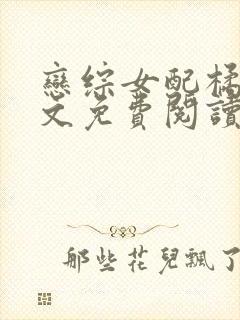 戀綜女配橘
文免費閱讀
那些花兒飄了